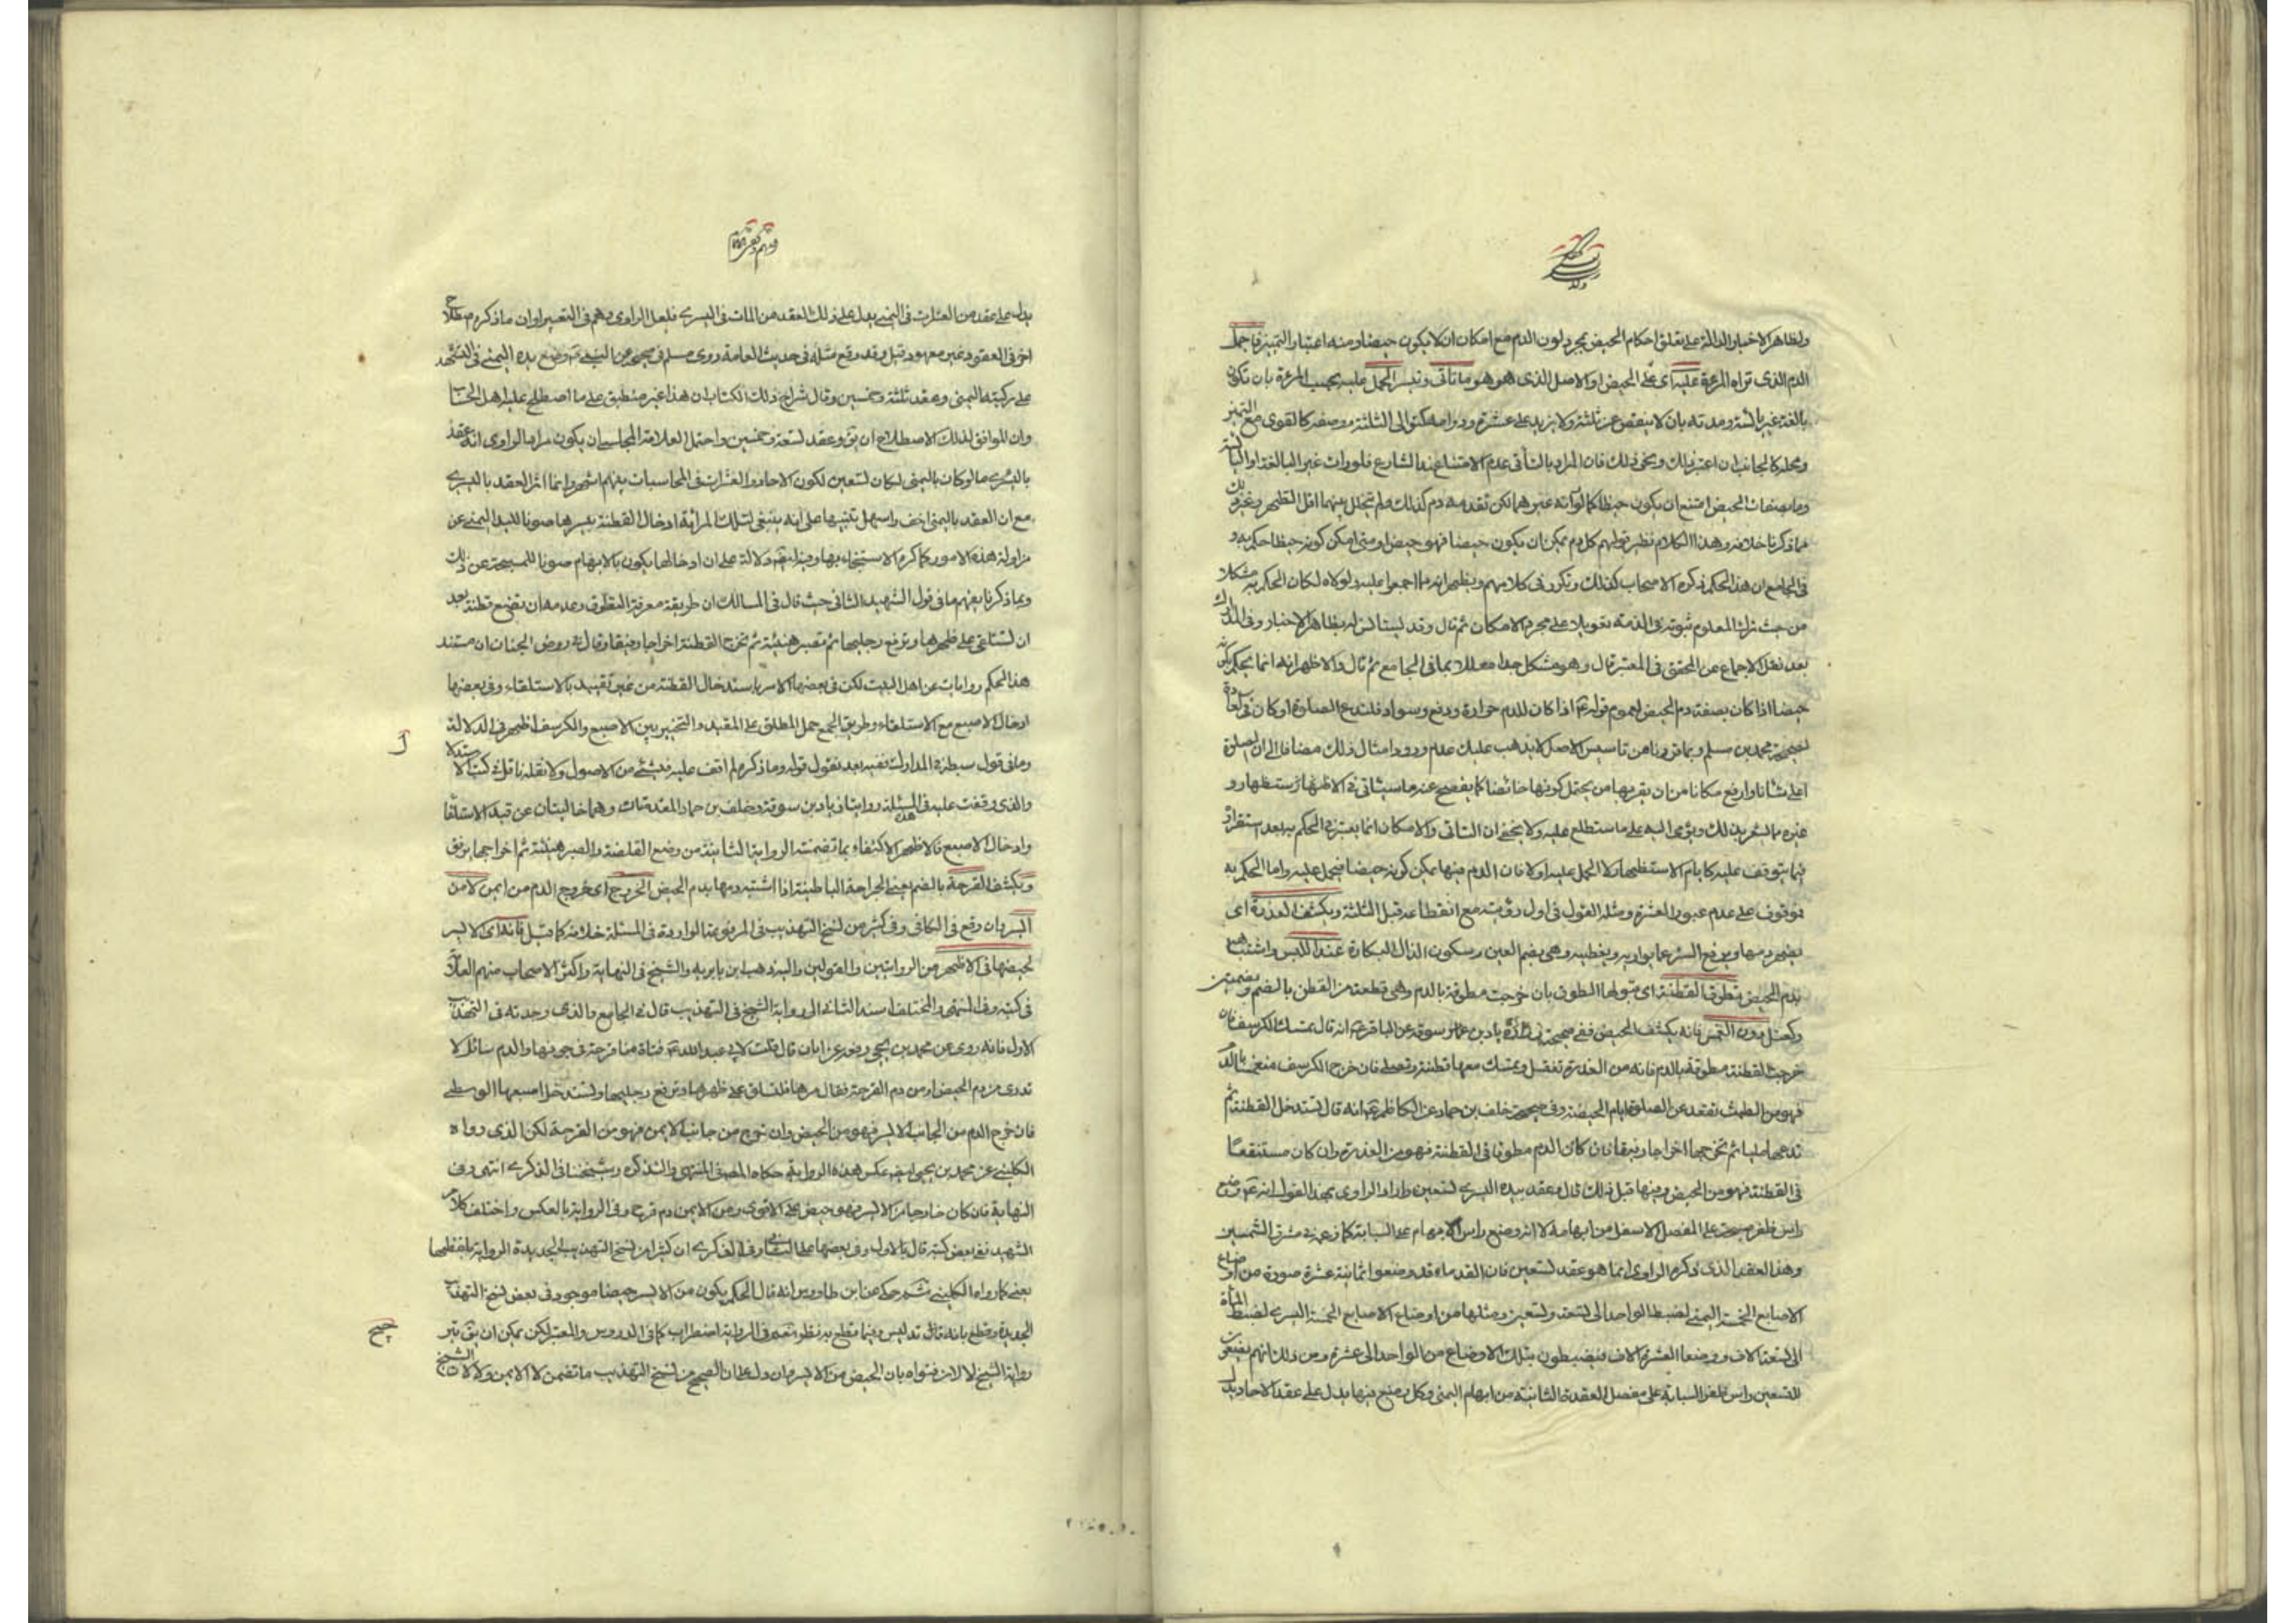 ولظاهر الاخبار الدالة على تعلق احكام الحيض بمجرد لون الدم مع امكان ان لا يكون حيضا ومنه اعتبار التميز فاجمل
الدم الذى تراه المرءة عليه اى على الحيض او الاصل الذى هو هو ما تأتى وتيسر الحمل عليه بحسب المرءة بان تكون
بالغة غير يائسة ومدته بان لا ينقص عن ثلثة ولا يزيد على عشرة ودوامه كتوالى الثلثة ووصفه كالقوى مع التميز
ومحله كالجانب ان اعتبر ذلك ونحو ذلك فان المراد بالتأتى عدم الامتناع عند الشارع فلو رات غير البالغة او اليائسة
وما بصفات الحيض امتنع ان يكون حيضا كما لو راته غيرهما لكن تقدمه دم كذلك ولم يتخلل بينهما اقل الطهر وغير ذلك
مما ذكرنا خلافه وهذا الكلام نظير قولهم كل دم يمكن ان يكون حيضا فهو حيض او متى امكن كونه حيضا حكم به و
فى الجامع ان هذا الحكم ذكره الاصحاب كذلك وتكرر فى كلامهم ويظهر انه مما اجمعوا عليه ولولاه لكان الحكم به مشكلا
من حيث ترك المعلوم ثبوته فى الذمة تعويلا على مجرد الامكان ثم قال وقد ليستانس له بظاهر الاخبار وفى المدارك
بعد نقل الاجماع عن المحقق فى المعتبر قال وهو مشكل جدا معللا بما فى الجامع ثم قال والاظهر انه انما يحكم بكونه
حيضا اذا كان بصفة دم الحيض لعموم قوله ع اذا كان للدم حرارة ودفع وسواد فلتدع الصلوة او كان فى العادة
لصحيحة محمد بن مسلم وبما قررناه من تاسيس الاصل لا يذهب عليك عدم ورود امثال ذلك مضافا الى ان الصلوة
اعلى شانا وارفع مكانا من ان يقربها من يحتمل كونها حائضا كما يفصح عنه ما سيأتى فى الاظهار الاستظهار و
غيره مما ليشعر بذلك ويؤمى اليه على ما ستطلع عليه ولا يخفى ان التاتى والامكان انما يعتبر فى الحكم به بعد استقراره
فيما يتوقف عليه كايام الاستظهار لا الحمل عليه اولا فان الدم فيها يمكن كونه حيضا فيحمل عليه واما الحكم به
فموقوف على عدم عبور العشرة ومثله القول فى اول رؤيته مع انقطاعه قبل الثلثة ويكشف العذرة اى
يظهر دمها ويرفع الستر عما يواريه ويغطيه وهى بضم العين وسكون الذال البكارة عند اللبس واشتباهه
بدم الحيض تطوق القطنة اى قبولها الطوق بان خرجت مطوقة بالدم وهى قطعة من القطن بالضم وبضمتين
وكعتل دون الغمس فانه يكشف الحيض ففى صحيحة زياد بن سوقة عن الباقر ع انه قال تمسك الكرسف فان
خرجت القطنة مطوقة بالدم فانه من العذرة تغتسل وتمسك معها قطنة وتصلى فان خرج الكرسف منغمسا بالدم
فهو من الطمث تقعد عن الصلوة ايام الحيضة وفى صحيحة خلف بن حماد عن الكاظم ع انه قال تستدخل القطنة ثم
تدعها مليا ثم تخرجها اخراجا رفيقا فان كان الدم مطوقا فى القطنة فهو من العذرة وان كان مستنقعا
فى القطنة فهو من الحيض وفيها قبل ذلك قال وعقد بيده اليسرى تسعين واراد الراوى بهذا القول انه ع وضع
راس ظفر مسبحته على المفصل الاسفل من ابهامه لا انه وضع راس الابهام على السبابة كما زعمه فى مشرق الشمسين
وهذا العقد الذى ذكره الراوى انما هو عقد تسعين فان القدماء قد وضعوا ثمانية عشرة صورة من اوضاع
الاصابع الخمسة اليمنى لضبط الواحد الى تسعة وتسعين ومثلها من اوضاع الاصابع الخمسة اليسرى لضبط المأة
الى تسعة الاف ووضعا لعشرة الاف فيضبطون بتلك الاوضاع من الواحد الى عشرة ومن ذلك انهم يضعون
للتسعين راس ظفر السبابة على مفصل العقدة الثانية من ابهام اليمنى وكل وضع فيها يدل على عقد الاحاد يدل
يدل على عقد من العشرات فى اليمنى يدل على ذلك العقد من المات فى اليسرى فلعل الراوى وهم فى التعبير او ان ما ذكره اصطلاح
اخر فى العقود غير معهود قبل وقد وقع مثله فى حديث العامة روى مسلم فى صحيحه عن النبى ص وضع يده اليمنى فى التشهد
على ركبته اليمنى وعقد ثلثة وخمسين وقال شراح ذلك الكتاب ان هذا غير منطبق على ما اصطلح عليه اهل الحساب
وان الموافق لذلك الاصطلاح ان يق وعقد تسعة وخمسين واحتمل العلامة المجلسى ان يكون مراد الراوى انه عقد
باليسرى ما لو كان باليمنى لكان تسعين لكون الاحاد والعشرات فى المحاسبات بينهم اشهر وانما اثر العقد باليسرى
مع ان العقد باليمنى اخف واسهل تنبيها على انه ينبغى لتلك المرأية ادخال القطنة بيسرها صونا لليد اليمنى عن
مزاولة هذه الامور كما كره الاستنجاء بها وفيه ايضا دلالة على ان ادخالها يكون بالابهام صونا للمسبحة عن ذلك
وبما ذكرنا يفهم ما فى قول الشهيد الثانى حيث قال فى المسالك ان طريقة معرفة التطوق وعدمه ان تضع قطنة بعد
ان تستلقى على ظهرها وترفع رجليها ثم تصبر هنيئة ثم تخرج القطنة اخراجا رفيقا وقال فى روض الجنان ان مستند
هذا الحكم روايات عن اهل البيت لكن فى بعضها الامر باستدخال القطنة من غير تقييد بالاستلقاء وفى بعضها
ادخال الاصبع مع الاستلقاء وطريق الجمع حمل المطلق على المقيد والتخيير بين الاصبع والكرسف اظهر فى الدلالة
وما فى قول سبطه فى المدارك نفيه بعد نقول قوله وما ذكره لم اقف عليه فى شئ من الاصول ولا نقله ناقل فى كتب الاستدلال
والذى وقفت عليه فى هذه المسئلة روايتا زياد بن سوقة وخلف بن حماد المتقدمتان وهما خاليتان عن قيد الاستلقاء
وادخال الاصبع فالاظهر الاكتفاء بما تضمنته الرواية الثانية من وضع القطنة والصبر هنيئة ثم اخراجها برفق
ويكشف القرحة بالضم يعنى الجراحة الباطنية اذا اشتبه دمها بدم الحيض الخروج اى خروج الدم من ايمن لا من
اليسر وان وقع فى الكافى وفى كثير من نسخ التهذيب فى المرفوعة الواردة فى المسئلة خلافه كما قيل فانه اى الايسر
لحيضها فى الاظهر من الروايتين والقولين واليه ذهب ابن بابويه والشيخ فى النهاية واكثر الاصحاب منهم العلامة
فى كتبه وفى المنتهى والمختلف اسند الثانى الى رواية الشيخ فى التهذيب قال فى الجامع والذى وجدته فى التهذيب
الاول فانه روى عن محمد بن يحيى رفعه عن ابان قال قلت لابى عبد الله ع فتاة منا قرحة فى جوفها والدم سائل لا
تدرى من دم الحيض او من دم القرحة فقال مرها فلتستلق على ظهرها وترفع رجليها وتستدخل اصبعها الوسطى
فان خرج الدم من الجانب الايسر فهو من الحيض وان خرج من جانب الايمن فهو من القرحة لكن الذى رواه
الكلينى عن محمد بن يحيى ايضا عكس هذه الرواية حكاه المصنف فى المنتهى والتذكرة وشيخنا فى الذكرى انتهى وفى
النهاية فان كان خارجا من الايسر فهو حيض على الاقوى ومن الايمن دم قرح وفى الرواية بالعكس واختلف كلام
الشهيد ففى بعض كتبه قال بالاول وفى بعضها على الثانى وفى الذكرى ان كثيرا من نسخ التهذيب الجديدة الرواية بلفظها
يعنى كما رواه الكلينى ثم حكى عن ابن طاووس انه قال الحكم بكون من الايسر حيضا موجود فى بعض نسخ التهذيب
الجديدة وقطع بانه تدليس وفيما قطع به نظر نعم فى الرواية اضطراب كما فى الدروس والمعتبر لكن يمكن ان يق بترجيح
رواية الشيخ لا لان فتواه بان الحيض من الايسر وان دل على ان الصحيح من نسخ التهذيب ما تضمن لا الايمن ولا لان الشيخ
صحيح